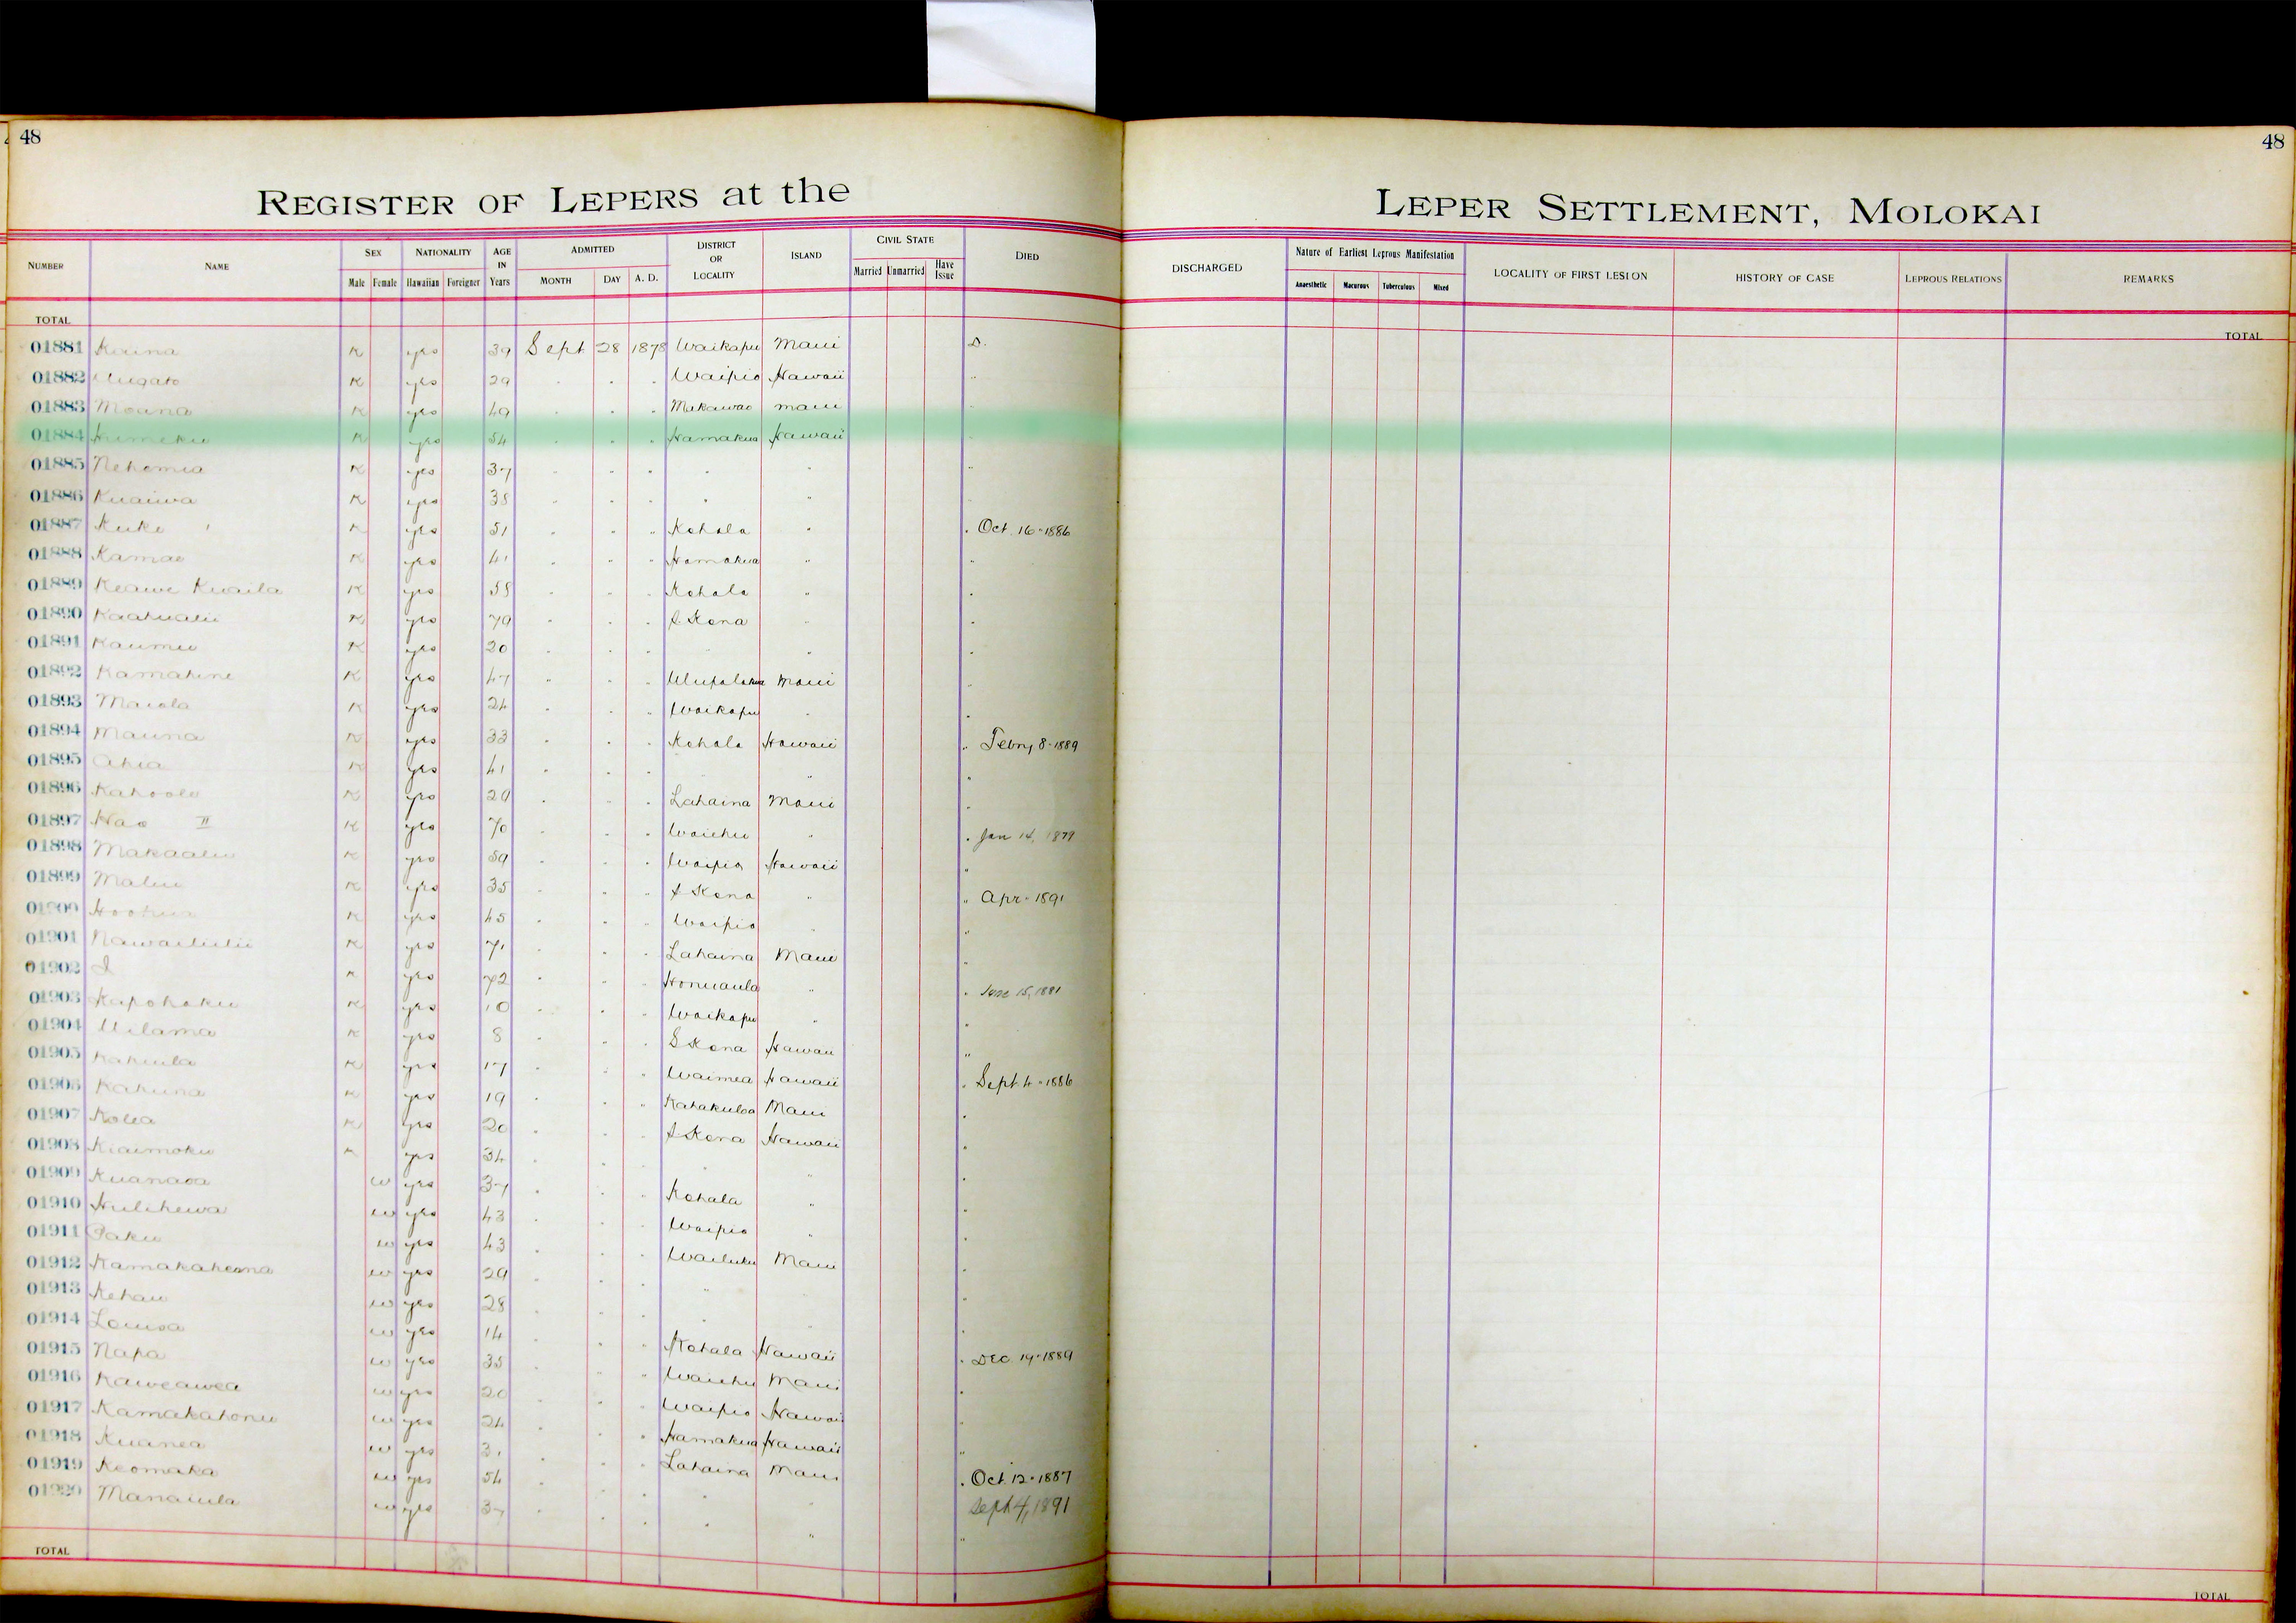 48
48
REGISTER OF LEPERS at the
LEPER SETTLEMENT, MOLOKAI
NUMBER NAME SEX NATIONALITY AGE IN Years ADMITTED DISTRICT OR LOCALITY ISLAND CIVIL STATE DIED DISCHARGED Nature of Earliest Leprous Manifestation LOCALITY OF FIRST LESION HISTORY OF CASE LEPROUS RELATIONS REMARKS
Male Female Hawaiian Foreigner MONTH DAY A. D. Married Unmarried Have Issue Anaesthetic Macurous Tuberculous Mixed
TOTAL TOTAL
01881 K yes 39 Sept 28 1878 Waikapu Maui D.
01882 K yes 29 " " " Waipio Hawaii "
01883 Moana K yes 49 " " " Makawao Maui "
01884 K yes 54 " " " Hamakua Hawaii "
01885 Nehemia K yes 37 " " " " " "
01886 Kuaiwa K yes 38 " " " " " "
01887 Kuke K yes 51 " " " Kohala " " Oct. 16-1886
01888 Kamao K yes 41 " " " Hamakua " "
01889 Keawe K yes 58 " " " Kohala " "
01890 Kaahualii K yes 79 " " " Kona " "
01891 Kaumu K yes 20 " " " " " "
01892 Kamahine K yes 47 " " " Ulupalakua Maui "
01893 Maiola K yes 24 " " " Waikapu " "
01894 Mauna K yes 33 " " " Kohala Hawaii " Febry 8-1889
01895 Ahia K yes 41 " " " " " "
01896 Kahoole K yes 29 " " " Lahaina Maui "
01897 Hao II K yes 70 " " " Waiehu " " Jan 14, 1879
01898 Makaalu K yes 59 " " " Waipio Hawaii "
01899 Malu K yes 35 " " " Kona " " Apr - 1891
01900 K yes 45 " " " Waipio " "
01901 Nawailiilii K yes 71 " " " Lahaina Maui "
01902 I K yes 72 " " " Honuaula " " June 15, 1881
01903 Kapohaku K yes 10 " " " Waikapu " "
01904 Uilama K yes 8 " " " S Kona Hawaii "
01905 Kahiula K yes 17 " " " Waimea Hawaii " Sept. 4-1886
01906 Kahuna K yes 19 " " " Kahakuloa Maui "
01907 Kolea K yes 20 " " " Kona Hawaii "
01908 Kiaimoku K yes 34 " " " " " "
01909 Kuanaoa w yes 37 " " " Kohala " "
01910 Hulihewa w yes 43 " " " Waipio " "
01911 Paku w yes 43 " " " Wailuku Maui "
01912 w yes 29 " " " " " "
01913 Kehau w yes 28 " " " " " "
01914 Louisa w yes 14 " " " Kohala Hawaii " Dec. 19-1889
01915 Napa w yes 35 " " " Waiehu Maui "
01916 Kaweawea w yes 20 " " " Waipio Hawaii "
01917 Kamakahonu w yes 24 " " " Hamakua Hawaii "
01918 Kuanea w yes 31 " " " Lahaina Maui " Oct. 12-1887
01919 Keomaka w yes 54 " " " " " Sept 4, 1891
01920 Manaiula w yes 37 " " " " " "
TOTAL TOTAL